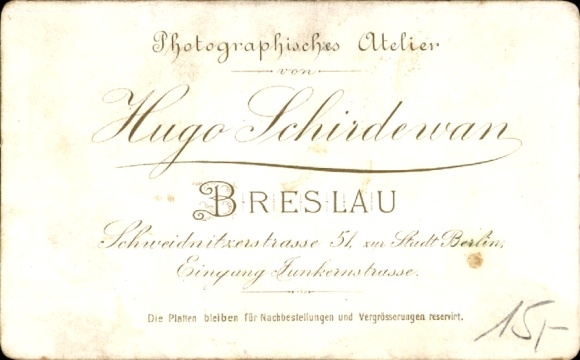 Photographisches Atelier
von
Hugo Schirdewan
BRESLAU
Schweidnitzerstrasse 51, zur Stadt Berlin,
Eingang Junkernstrasse.
Die Platten bleiben für Nachbestellungen und Vergrösserungen reservirt.
15,-